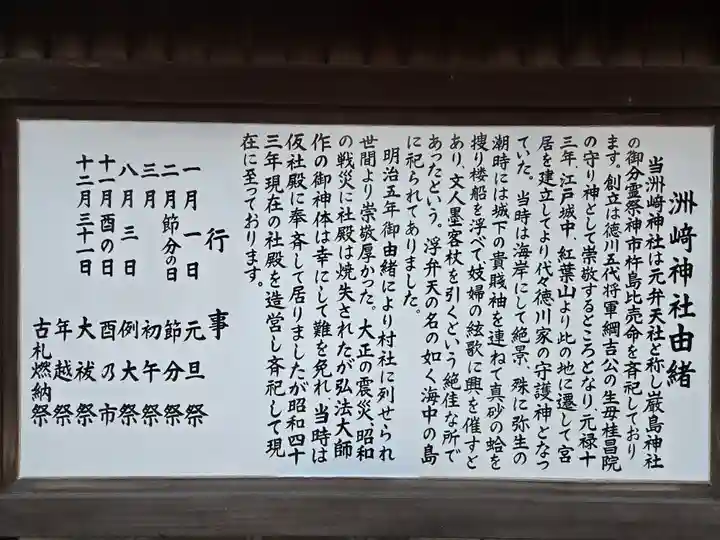 洲﨑神社由緒
当洲﨑神社は元弁天社と称し厳島神社
の御分霊祭神市杵島比売命を斉祀しており
ます。創立は徳川五代将軍綱吉公の生母桂昌院
の守り神として崇敬するところとなり、元禄十
三年、江戸城中、紅葉山より此の地に遷して宮
居を建立してより代々徳川家の守護神となっ
ていた。当時は海岸にして絶景、殊に弥生の
潮時には城下の貴賎袖を連ねて真砂の蛤を
捜り楼船を浮べて妓婦の絃歌に興を催すと
あり、文人墨客杖を引くという絶佳な所で
あったという。浮弁天の名の如く海中の島
に祀られてありました。
明治五年御由緒により村社に列せられ
世間より崇敬厚かった。大正の震災、昭和
の戦災に社殿は焼失されたが弘法大師
作の御神体は幸にして難を免れ、当時は
仮社殿に奉斉して居りましたが昭和四十
三年現在の社殿を造営し斉祀して現
在に至っております。
行事
一月一日 元旦祭
二月節分の日 節分祭
三月 初午祭
八月三日 例大祭
十一月酉の日 酉乃市
十二月三十一日 大祓祭
年越祭
古札燃納祭